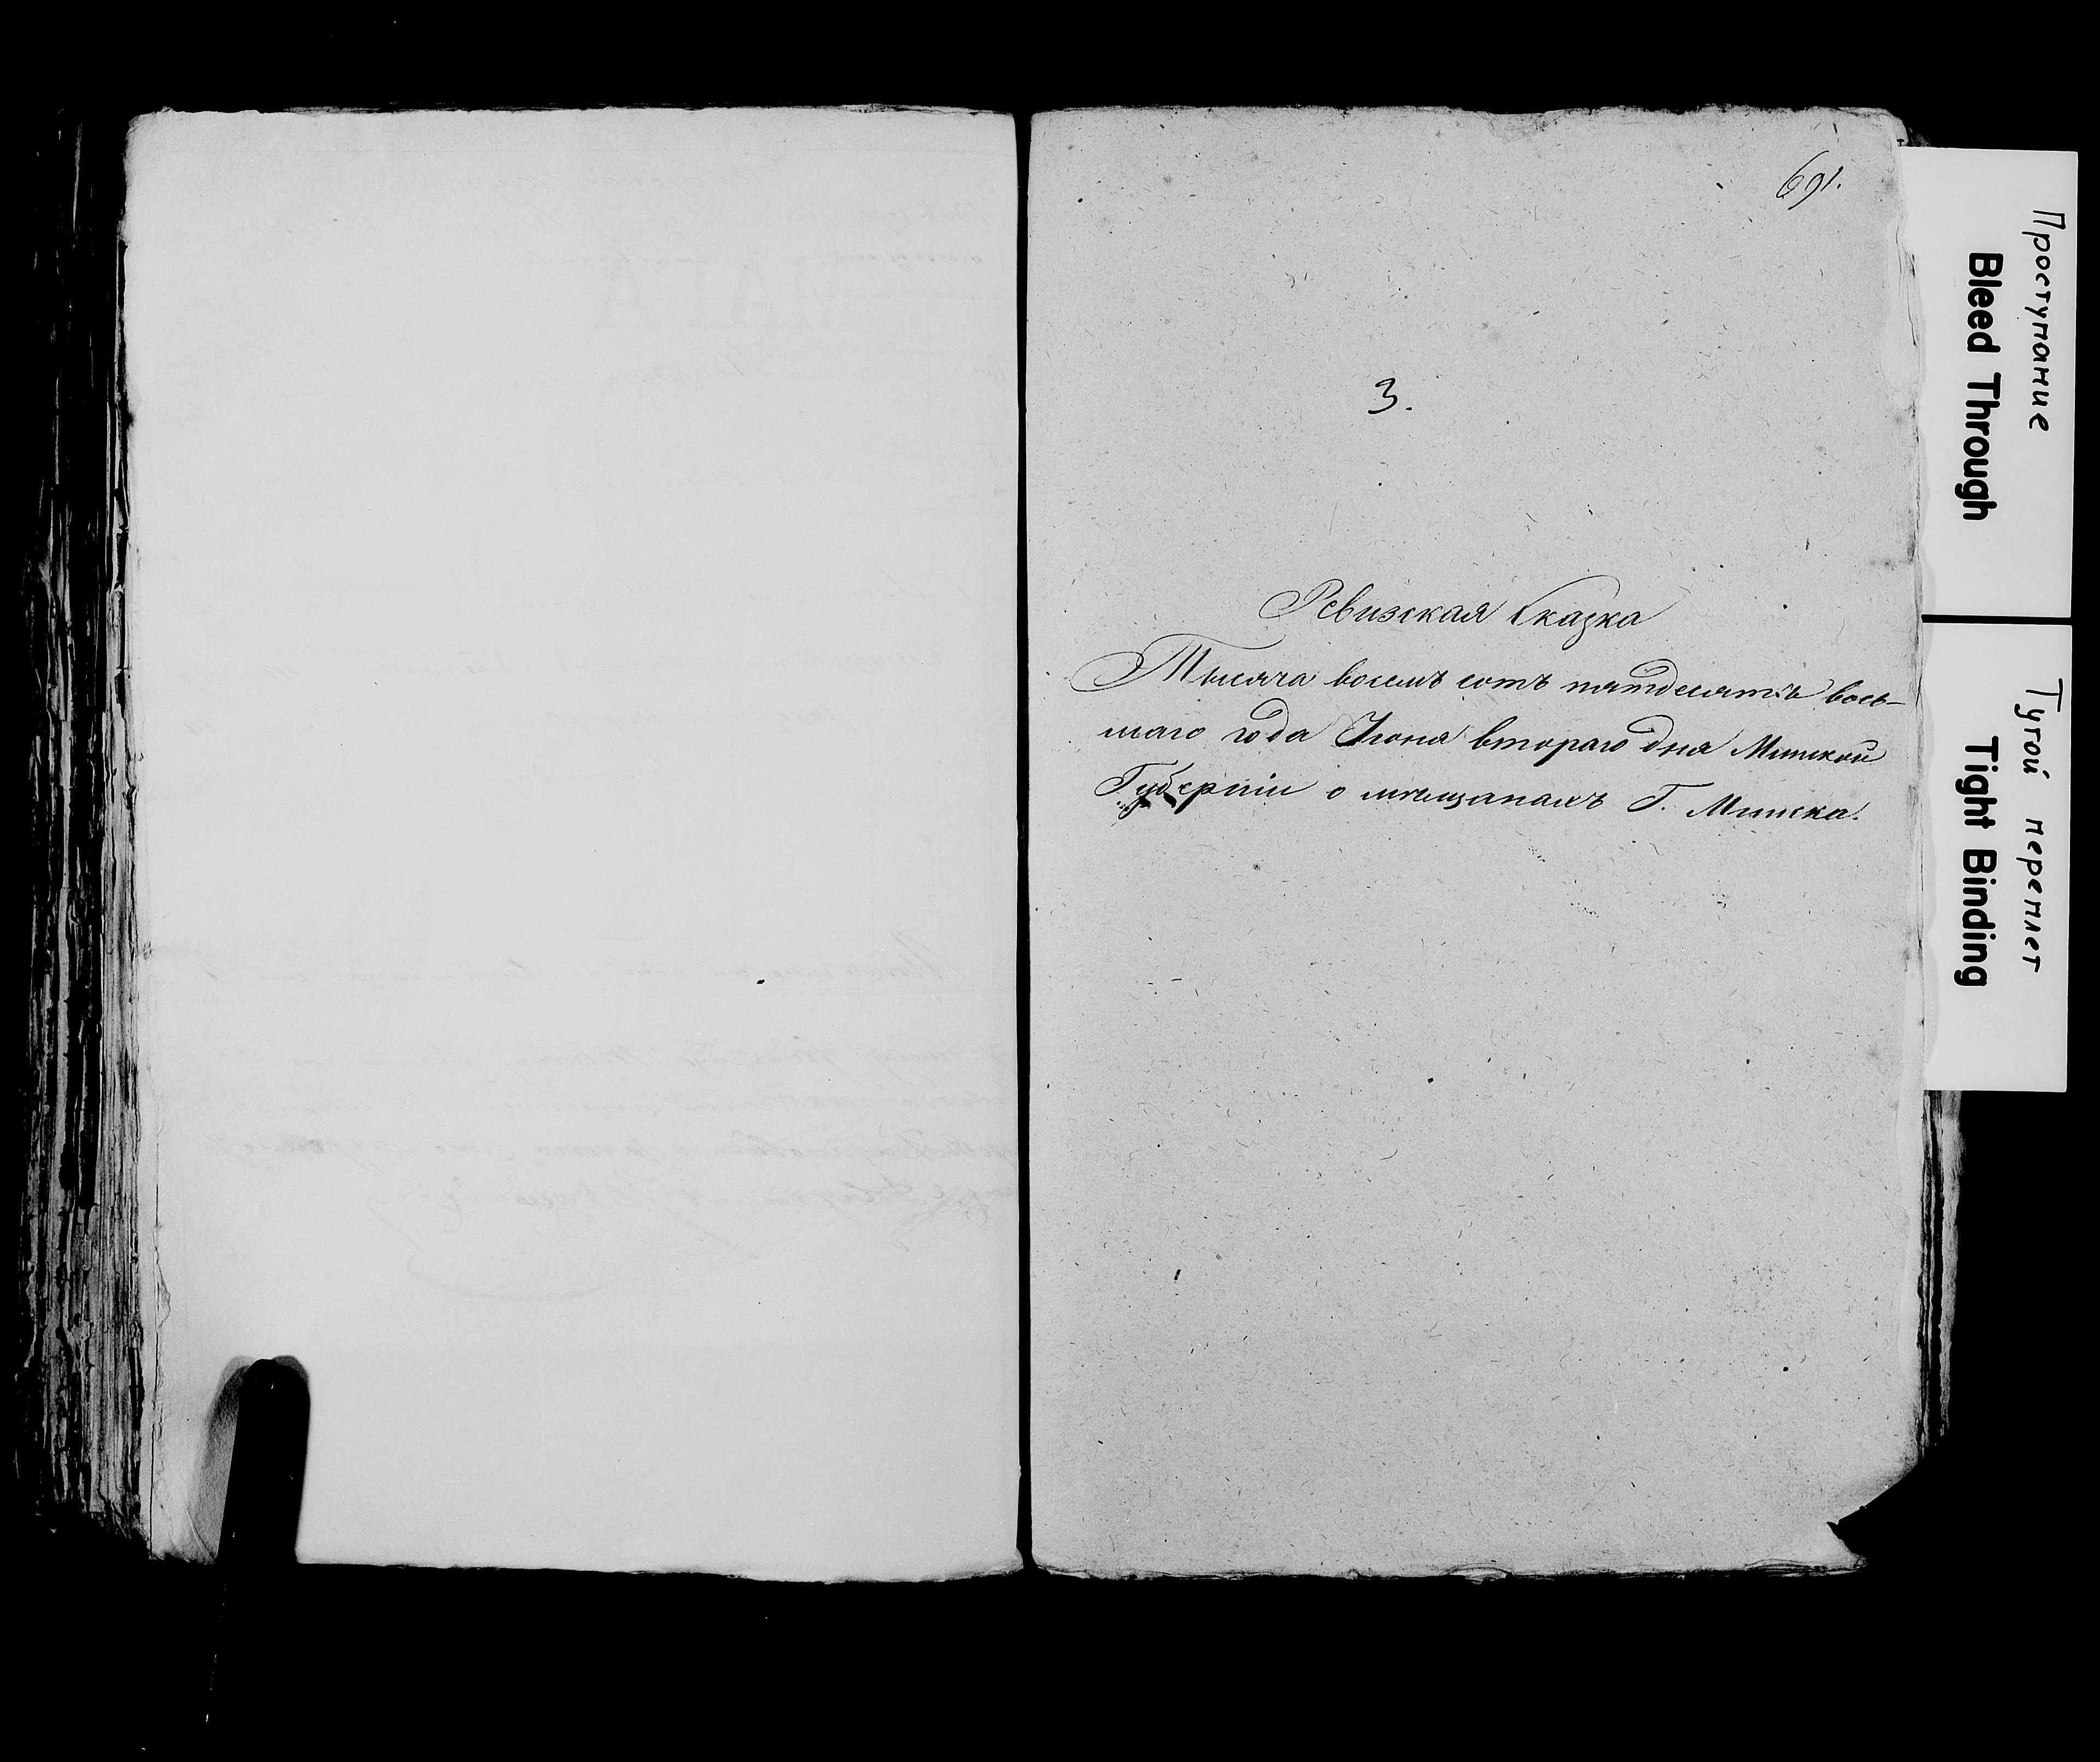 691.
3.
Ревизская Сказка
Тысяча восемь сотъ пятдесятъ вось-
маго года Июня втораго дня Минской
Губерніи о мѣщанахъ Г. Минска.
Проступание
Bleed Through
Тугой переплет
Tight Binding